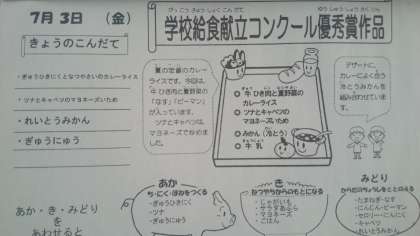 7月3日 （金）
学校給食献立コンクール優秀賞作品
きょうのこんだて
・ぎゅうひきにくとなつやさいのカレーライス
・ツナとキャベツのマヨネーズいため
・れいとうみかん
・ぎゅうにゅう
夏の定番のカレー
ライスです。今回は、
牛ひき肉と夏野菜の
「なす」「ピーマン」
が入っています。
ツナとキャベツは、
マヨネーズで
牛ひき肉と夏野菜の
カレーライス
ツナとキャベツの
マヨネーズいため
みかん（冷とう）
牛乳
デザートに、
カレーによく合う
冷とうみかんを
組み合わせていま
す。
あか
ち・にく・ほねをつくる
・ぎゅうひきにく
・ツナ
・ぎゅうにゅう
き
ねつやちからのもとになる
・じゃがいも
・サラダあぶら
・マヨネーズ
・ごはん
みどり
からだのちょうしをととのえる
・たまねぎ・なす
・にんじん・ピーマン
・セロリー・にんにく
・キャベツ
・れいとうみかん
あか・き・みどり
を
あわせると